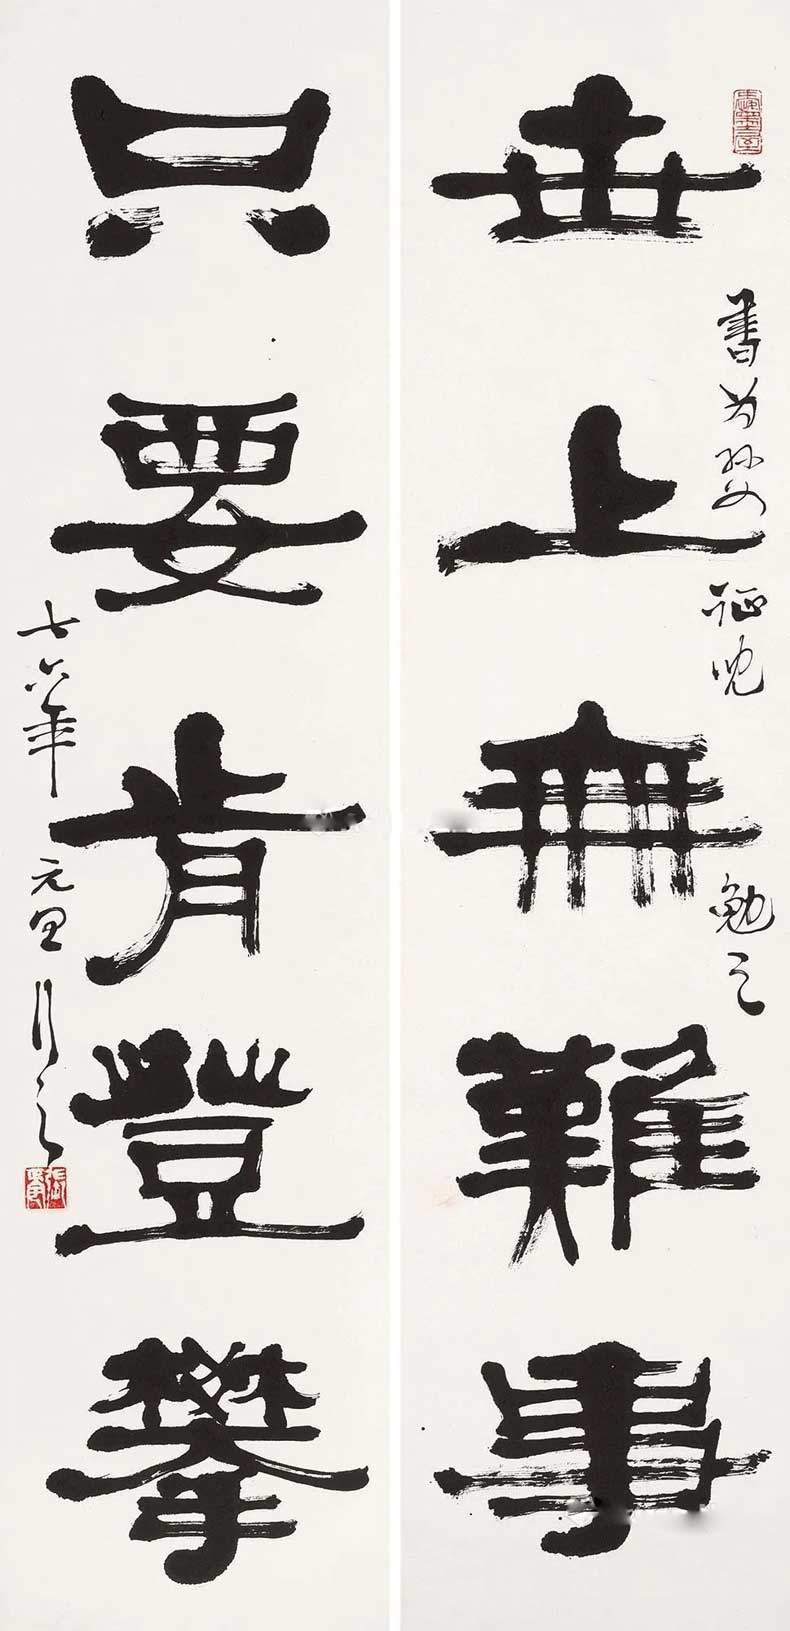 世上無難事
書为孙女
勉之
只要肯登攀
七六年
元旦